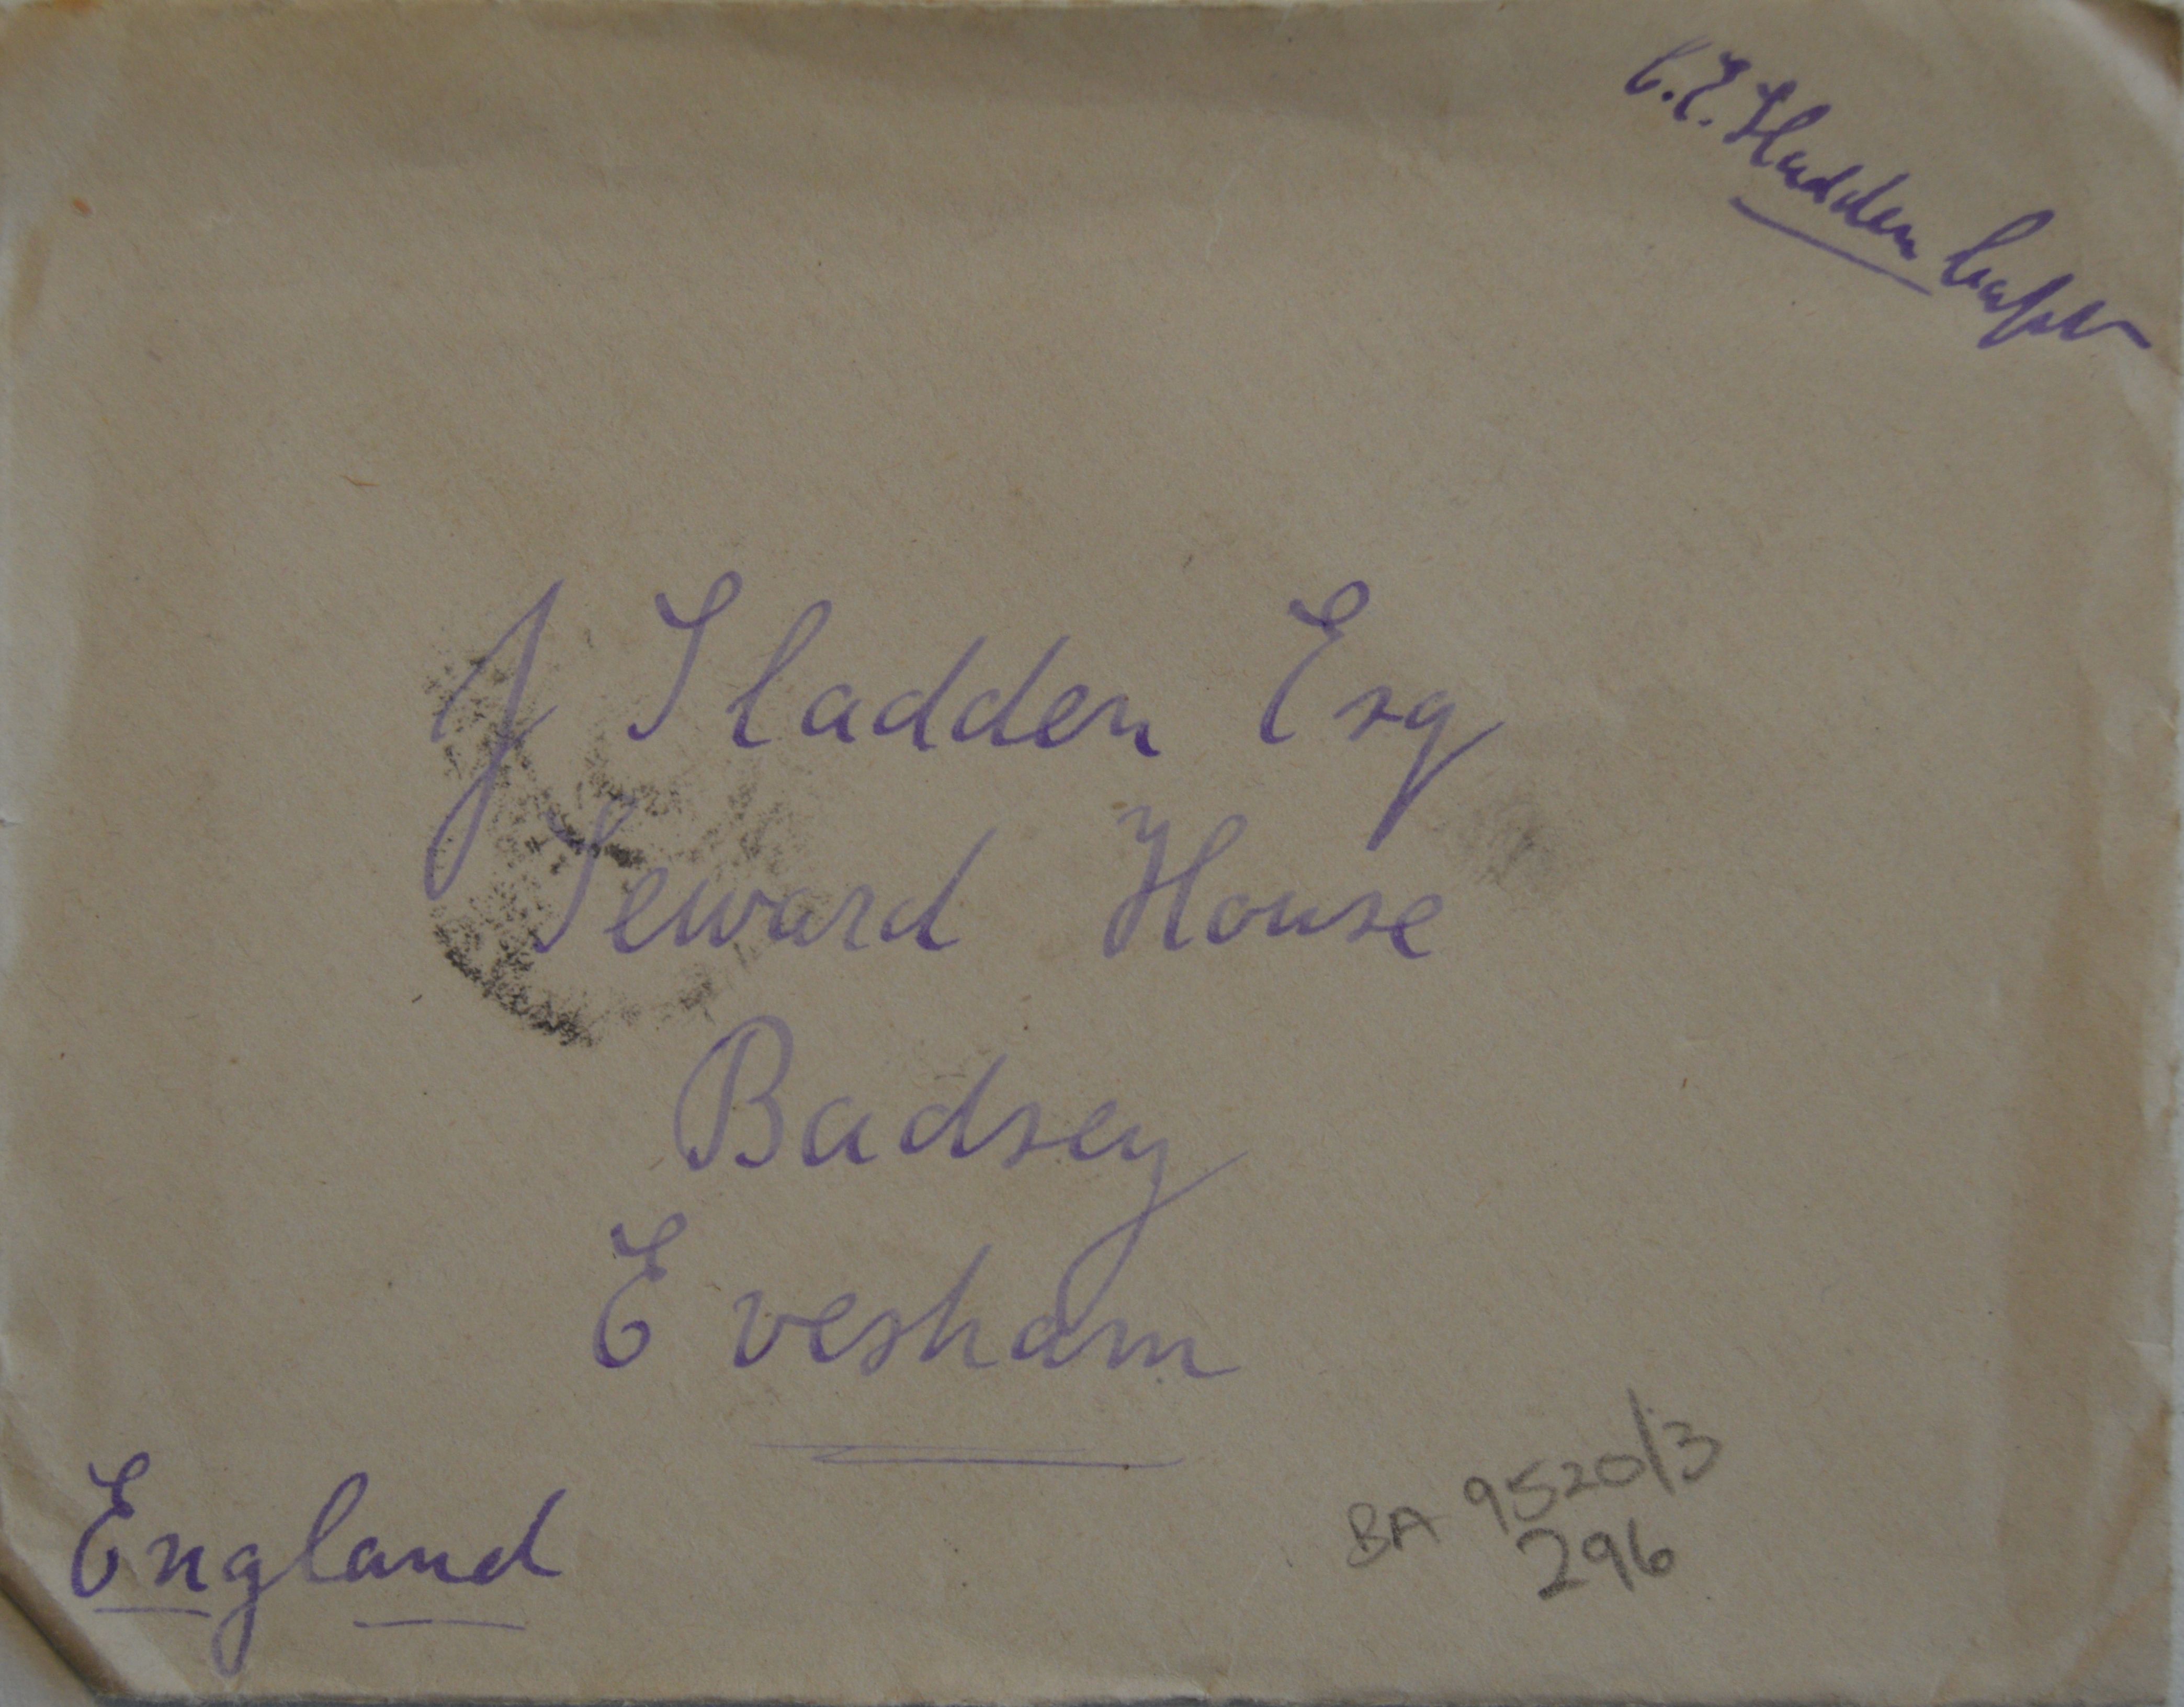 C.E. Sladden Capt
J Sladden Esq
Seward House
Badsey
Evesham
England
BA 9520/3
296